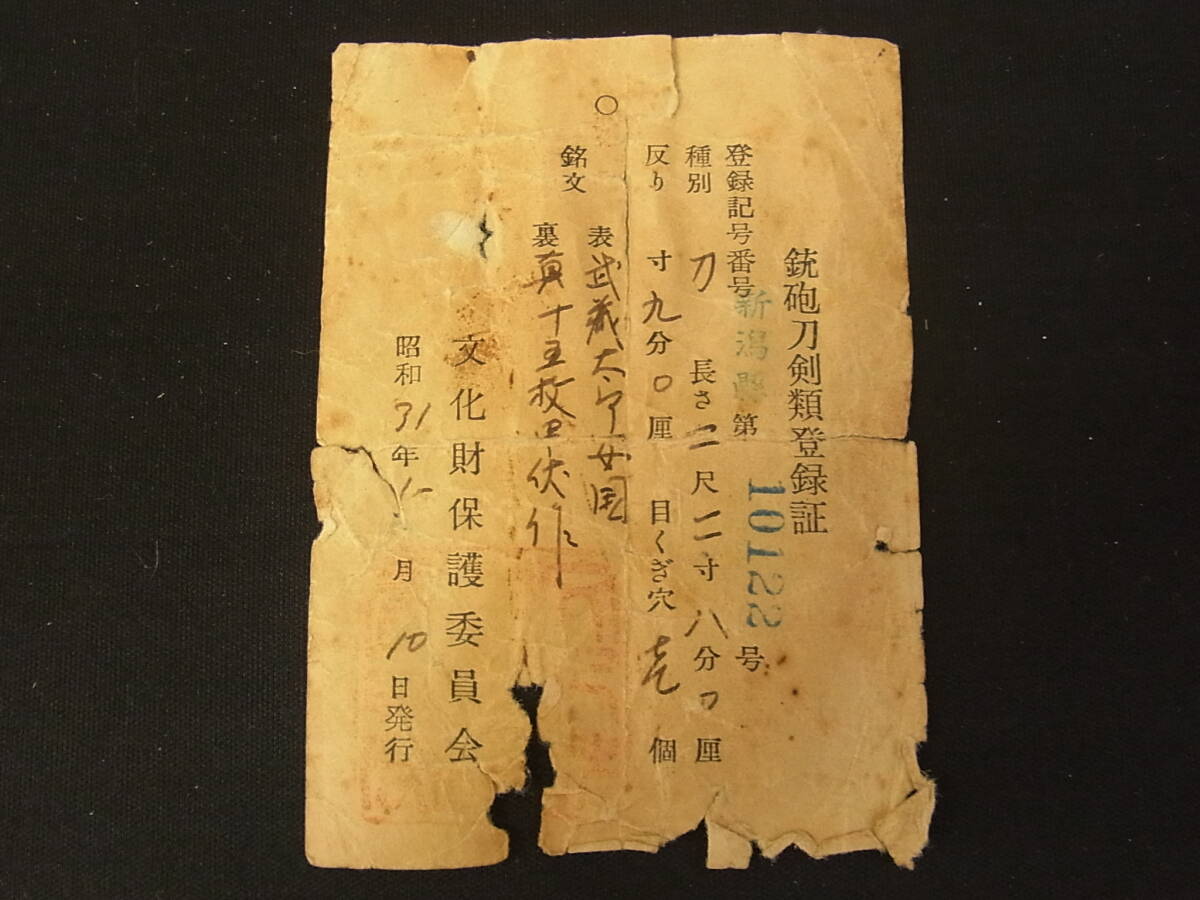 銃砲刀剣類登録証
登録記号番号 新潟縣 第 10122 号
種別 刀 長さ 二尺 二寸 八分 0厘
反り 寸 九分 0厘 目くぎ穴 壱 個
銘文 表 武蔵太守安国
裏 真十五枚甲伏作
文化財保護委員会
昭和 31年 月 10日発行